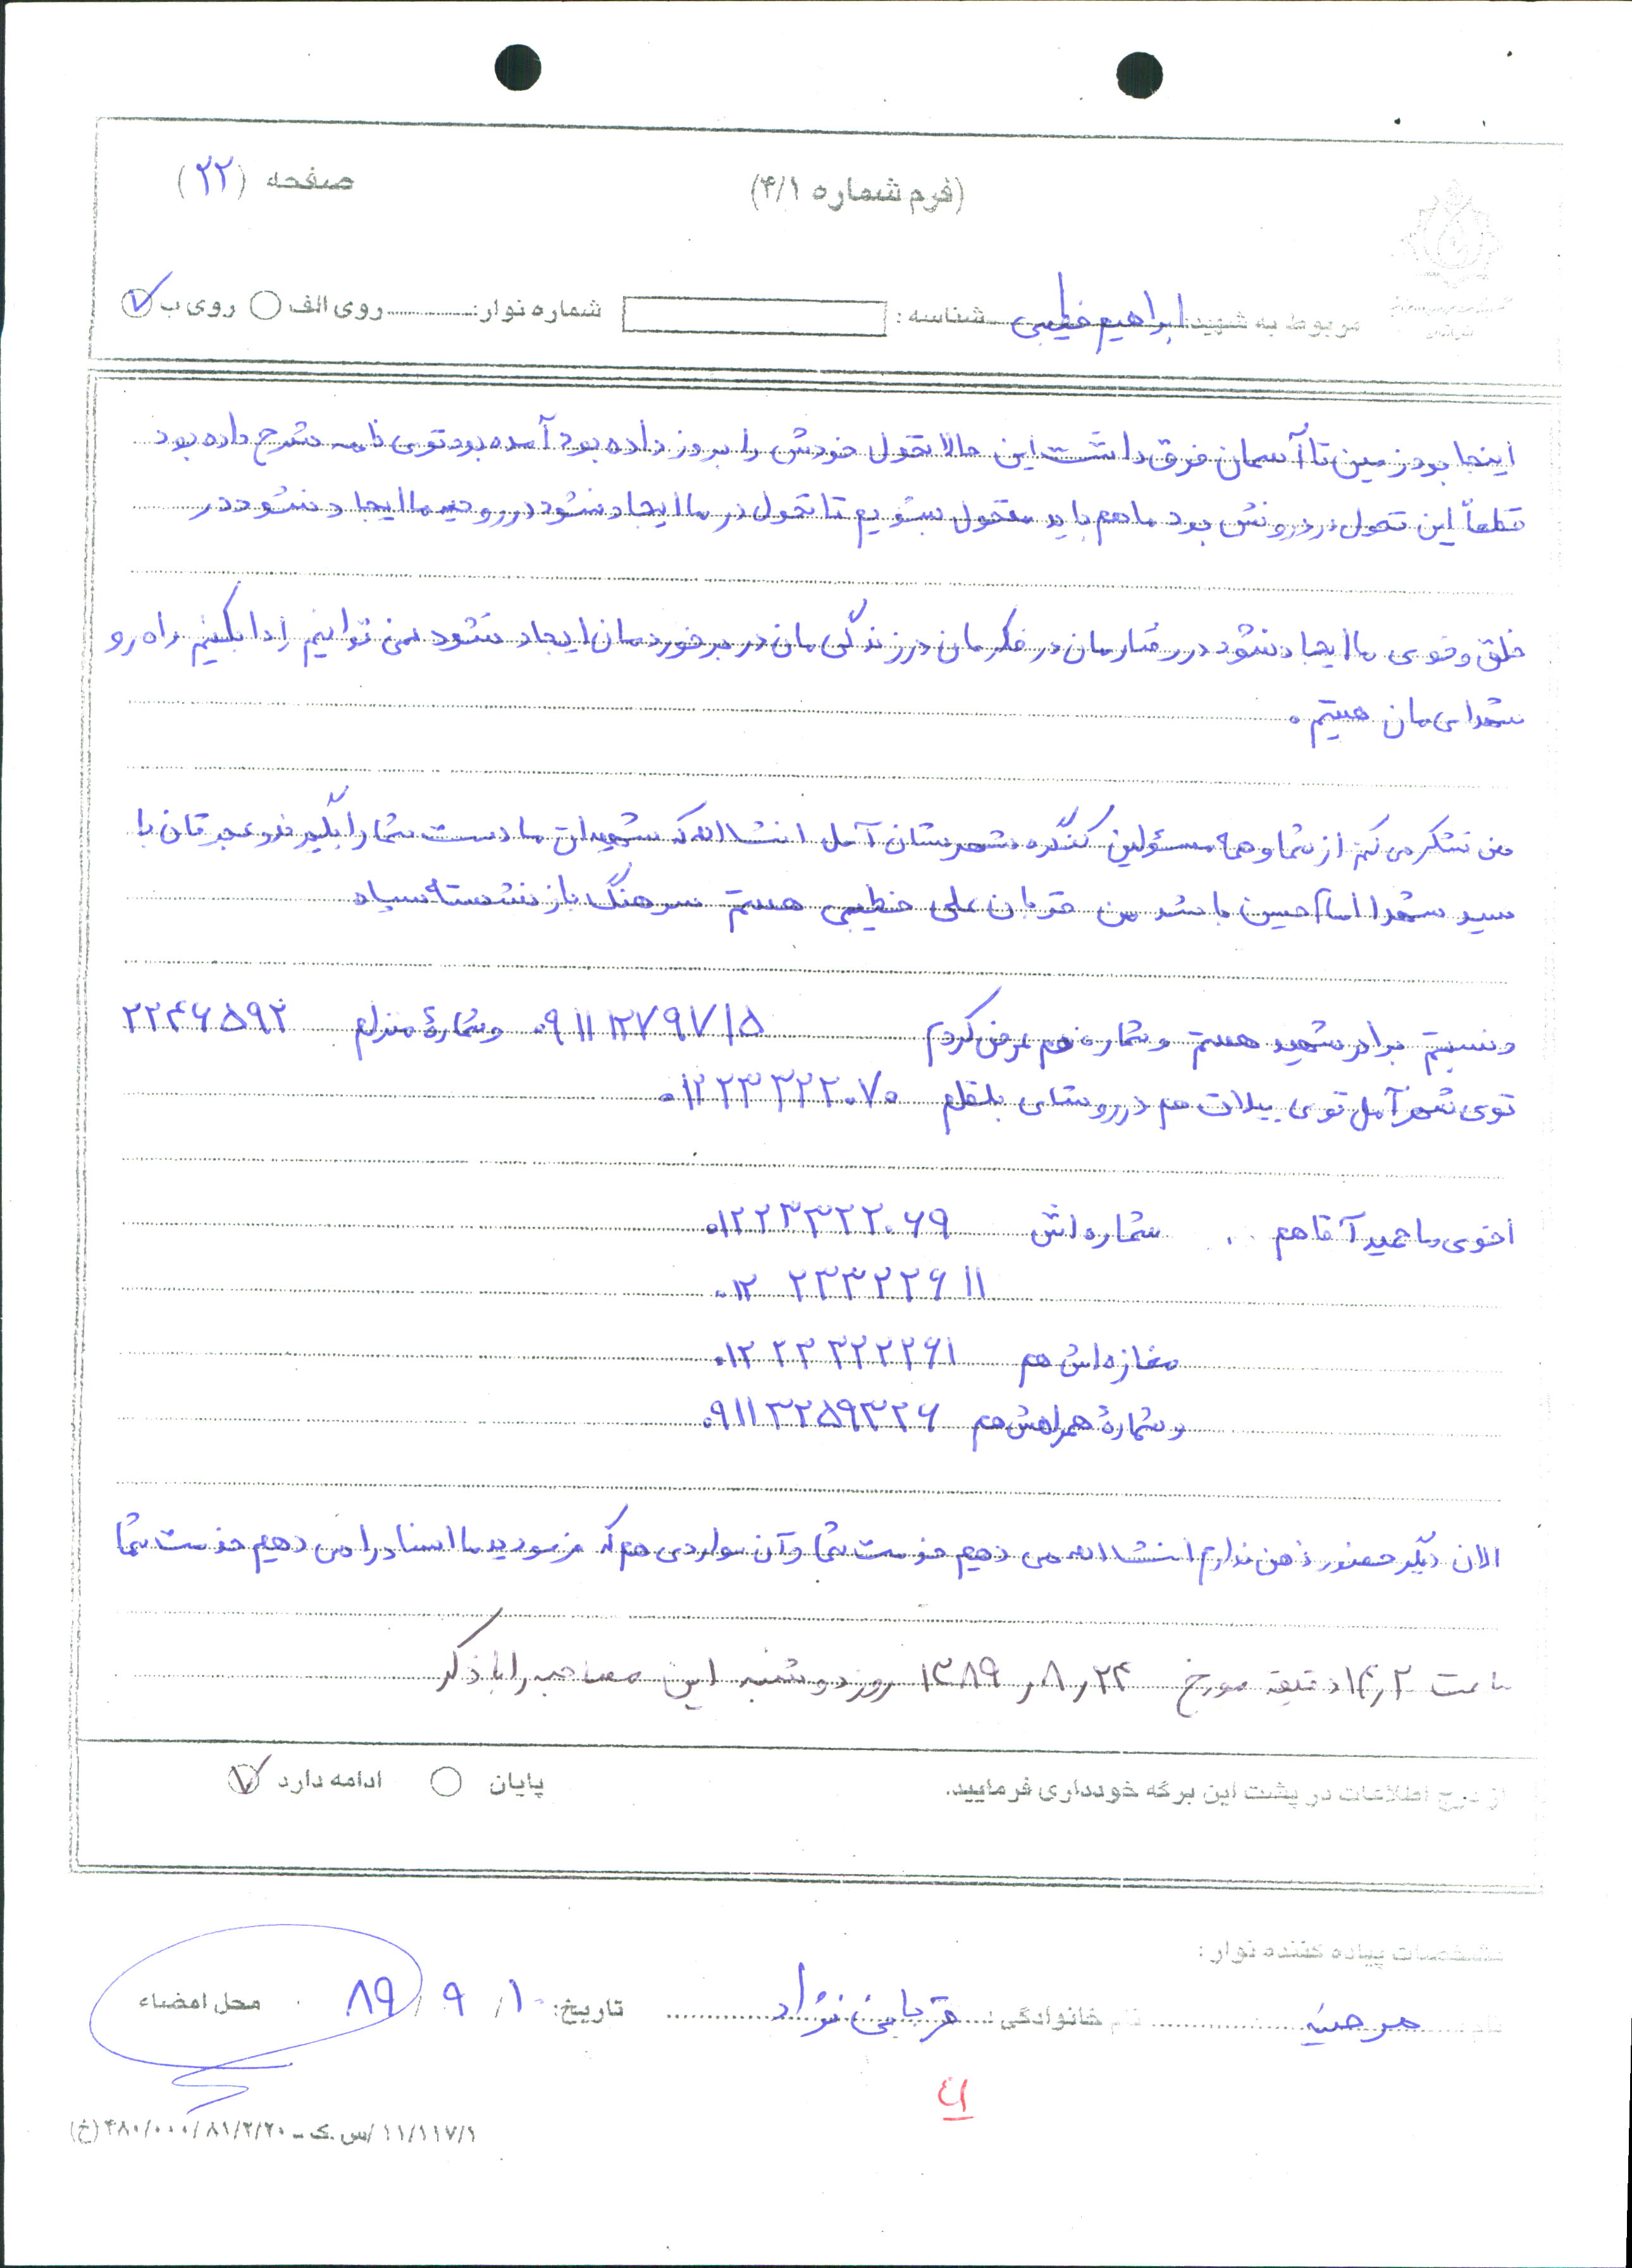 صفحه (۲۲)
(فرم شماره ۴/۱)
مربوط به شهید: ابراهیم خطیبی شناسه: شماره نوار: روی الف روی ب
اینجا بود زمین تا آسمان فرق داشت این حالا تحول خودش را بروز داده بود آمده بود توی نامه شرح داده بود
قطعاً این تحول در درونش بود ما هم باید متحول بشویم تا تحول در ما ایجاد نشود در روحیه ما ایجاد نشود در
خلق و خوی ما ایجاد نشود در رفتارمان در فکرمان در زندگی مان در برخوردمان ایجاد نشود نمی توانیم ادا بکنیم راه رو
شهدای مان هستیم.
من تشکر می کنم از شما و همه مسئولین کنگره شهرستان آمل انشاالله که شهیدان ما دست شما را بگیرند و اجرتان با
سید شهدا امام حسین باشد من قربان علی خطیبی هستم سرهنگ بازنشسته سپاه
و نسبتم برادر شهید هستم و شماره هم عرض کردم ۰۹۱۱۱۲۷۹۷۱۵ و شمارهٔ منزلم ۲۲۴۶۵۹۲
توی شهر آمل توی ییلاق هم در روستای ۰۱۲۲۳۳۲۲۰۷۰
اخوی ما حمید آقا هم .. شماره اش ۰۱۲۲۳۳۲۲۰۶۹
۰۱۲ ۲۳۳۲۲۶۱۱
مغازه اش هم ۰۱۲۲۳۳۲۲۲۶۱
و شمارهٔ همراهش هم ۰۹۱۱۳۲۵۹۳۲۶
الان دیگر حضور ذهن ندارم انشاالله می دهیم خدمت شما و آن مواردی هم که فرمودید ما اسناد را می دهیم خدمت شما
ساعت ۱۴٫۲ دقیقه مورخ ۲۴٫۸٫۱۳۸۹ روز دوشنبه این مصاحبه را با ذکر
از درج اطلاعات در پشت این برگه خودداری فرمایید. پایان ادامه دارد
مشخصات پیاده کننده نوار:
نام: مرضیه نام خانوادگی: قربانی نژاد تاریخ: ۱۰/ ۹/ ۸۹ محل امضاء
۴۱
۱۱/۱۱۷/۱/س.ک-۴۸۰/۰۰۰/۸۱/۲/۲۰(خ)